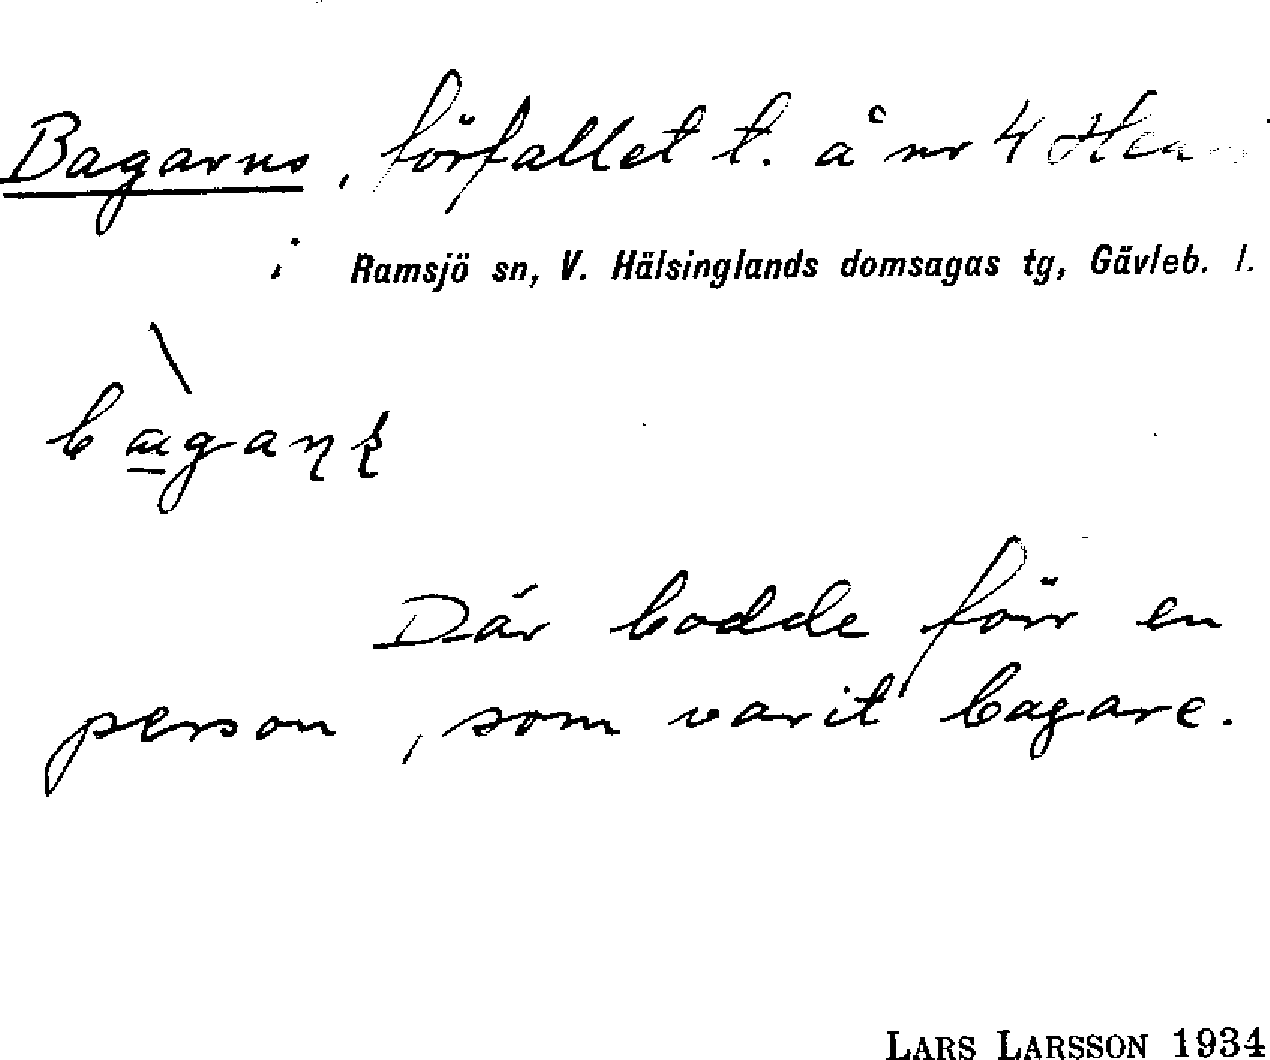 Bagarns, förfallet t. å nr 4
i Ramsjö sn, V. Hälsinglands domsagas tg, Gävleb. l.
Där bodde förr en
person, som varit bagare.
LARS LARSSON 1934